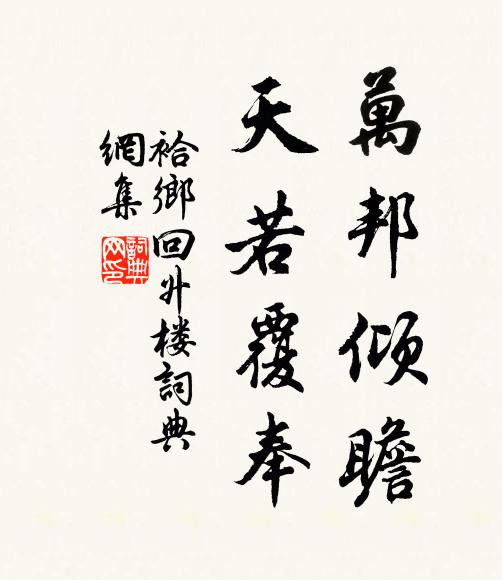 萬邦傾瞻
天若覆奉
袷鄉回外楼詞典
網集
詞典
网印